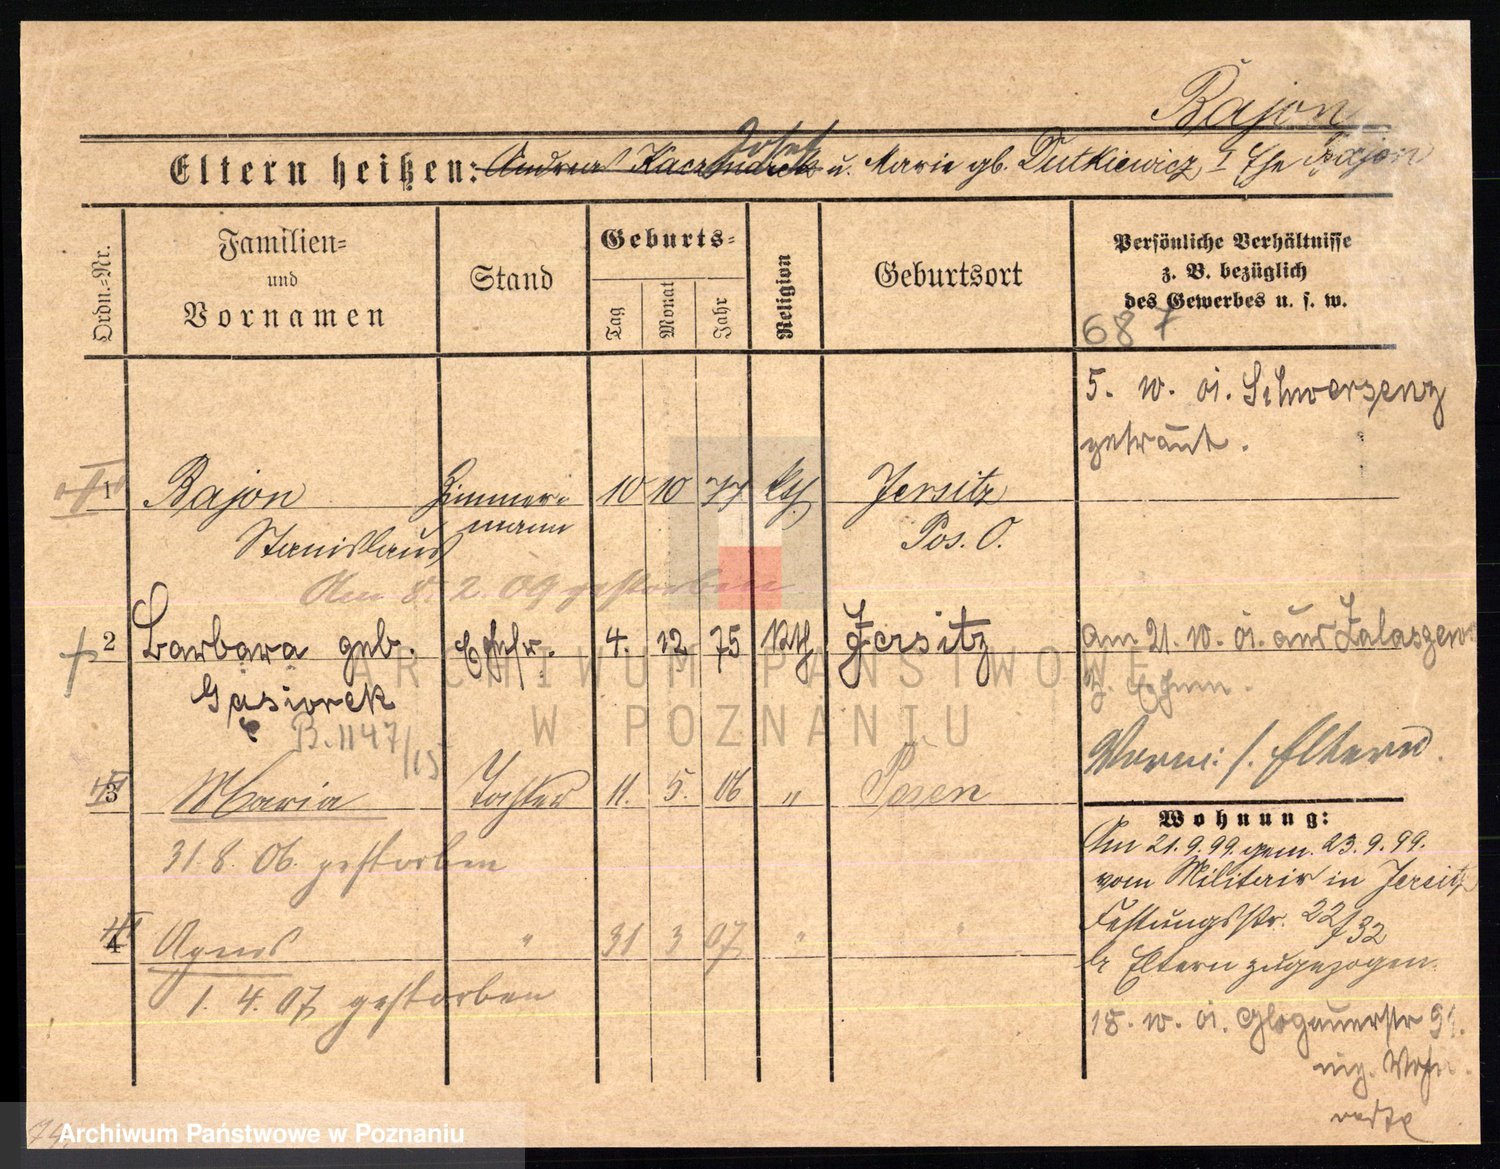 Bajon
Eltern heißen: Andreas Kaczmarek Josef u. Marie gb. Dutkiewicz, I Ehe Bajon
Ordn.=Nr.
Familien=
und
Vornamen
Stand
Geburts=
Tag
Monat
Jahr
Religion
Geburtsort
Persönliche Verhältnisse
z. B. bezüglich
des Gewerbes u. s. w.
687
5. 10. 01. Schwersenz
getraut.
1 Bajon Zimmermann 10 10 77 kth Jersitz
Stanislaus Pos. O.
Am 8. 2. 09 gestorben
2 Barbara geb. Ehefr. 4. 12 75 Kth Jersitz
Gąsiorek
am 21. 10. 01. aus Zalaszewo
z. Ehem.
B. 1147/15
Vorm: s. Eltern.
3 Maria Tochter 11. 5. 06 " Posen
31. 8. 06. gestorben
4 Agnes " 31 3 07 " "
1. 4. 07 gestorben
Wohnung:
Am 21.9.99 gem. 23.9.99.
vom Militair in Jersitz
Festungsstr. 22/32
Eltern zugezogen.
18. 10. 01. Glogauerstr 91.
ARCHIWUM PAŃSTWOWE
W POZNANIU
74
Archiwum Państwowe w Poznaniu